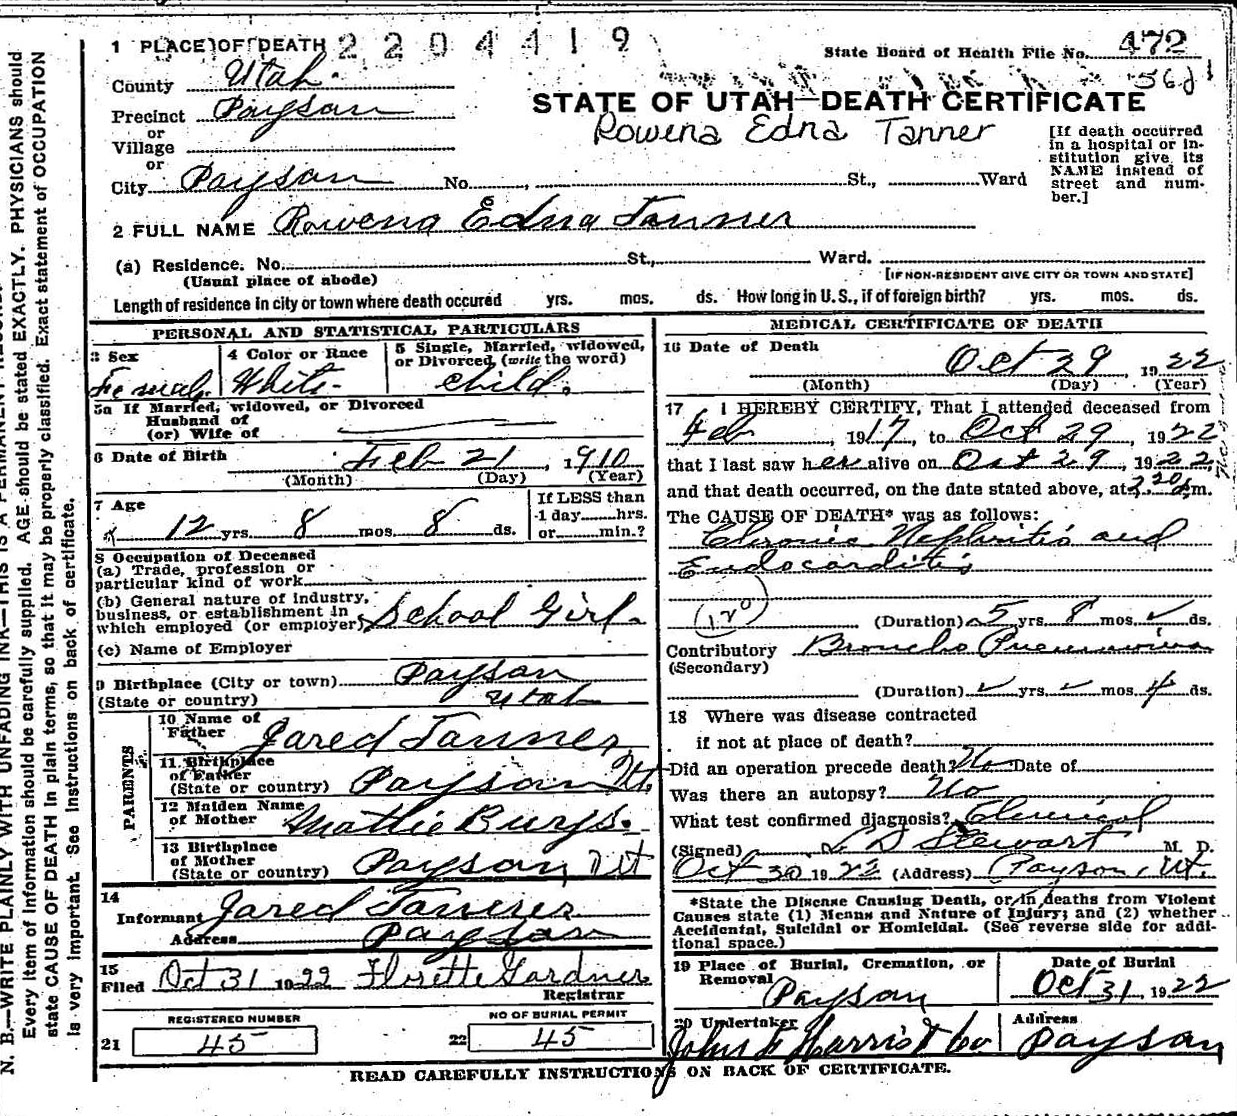 1 PLACE OF DEATH 2204419
State Board of Health File No. 472
County Utah
Precinct Payson
or
Village
or
City Payson No. St., Ward
STATE OF UTAH—DEATH CERTIFICATE
Rowena Edna Tanner
[If death occurred
in a hospital or in-
stitution give its
NAME instead of
street and num-
ber.]
2 FULL NAME Rowena Edna Tanner
(a) Residence. No. St., Ward.
(Usual place of abode) [IF NON-RESIDENT GIVE CITY OR TOWN AND STATE]
Length of residence in city or town where death occured yrs. mos. ds. How long in U.S., if of foreign birth? yrs. mos. ds.
PERSONAL AND STATISTICAL PARTICULARS
3 Sex
Female
4 Color or Race
White
5 Single, Married, widowed,
or Divorced, (write the word)
Child.
5a If Married, widowed, or Divorced
Husband of
(or) Wife of
6 Date of Birth Feb 21, 1910
(Month) (Day) (Year)
7 Age
12 yrs. 8 mos. 8 ds.
If LESS than
1 day hrs.
or min.?
8 Occupation of Deceased
(a) Trade, profession or
particular kind of work
(b) General nature of industry,
business, or establishment in
which employed (or employer) School Girl.
(c) Name of Employer
9 Birthplace (City or town) Payson
(State or country) Utah
PARENTS
10 Name of
Father Jared Tanner
11 Birthplace
of Father
(State or country) Payson Ut.
12 Maiden Name
of Mother Mattie
13 Birthplace
of Mother
(State or country) Payson, Ut
14
Informant Jared Tanner
Address Payson
15
Filed Oct 31 1922 Gardner
Registrar
REGISTERED NUMBER
21 45
NO OF BURIAL PERMIT
22 45
MEDICAL CERTIFICATE OF DEATH
16 Date of Death
Oct 29 1922
(Month) (Day) (Year)
17 I HEREBY CERTIFY, That I attended deceased from
Feb, 1917, to Oct 29, 1922
that I last saw her alive on Oct 29, 1922,
and that death occurred, on the date stated above, at m.
The CAUSE OF DEATH* was as follows:
Chronic Nephritis and
Endocarditis
(Duration) 5 yrs. 8 mos. ds.
Contributory Broncho Pneumonia
(Secondary)
(Duration) yrs. mos. 4 ds.
18 Where was disease contracted
if not at place of death?
Did an operation precede death? No Date of
Was there an autopsy? No
What test confirmed diagnosis? Clinical
(Signed) L D Stewart M. D.
Oct 30 1922 (Address) Payson, Ut.
*State the Disease Causing Death, or in deaths from Violent
Causes state (1) Means and Nature of Injury; and (2) whether
Accidental, Suicidal or Homicidal. (See reverse side for addi-
tional space.)
19 Place of Burial, Cremation, or
Removal
Payson
Date of Burial
Oct 31 1922
20 Undertaker
John F Harris & Co
Address
Payson
READ CAREFULLY INSTRUCTIONS ON BACK OF CERTIFICATE.
Every item of information should be carefully supplied. AGE should be stated EXACTLY. PHYSICIANS should
state CAUSE OF DEATH in plain terms, so that it may be properly classified. Exact statement of OCCUPATION
is very important. See Instructions on back of certificate.